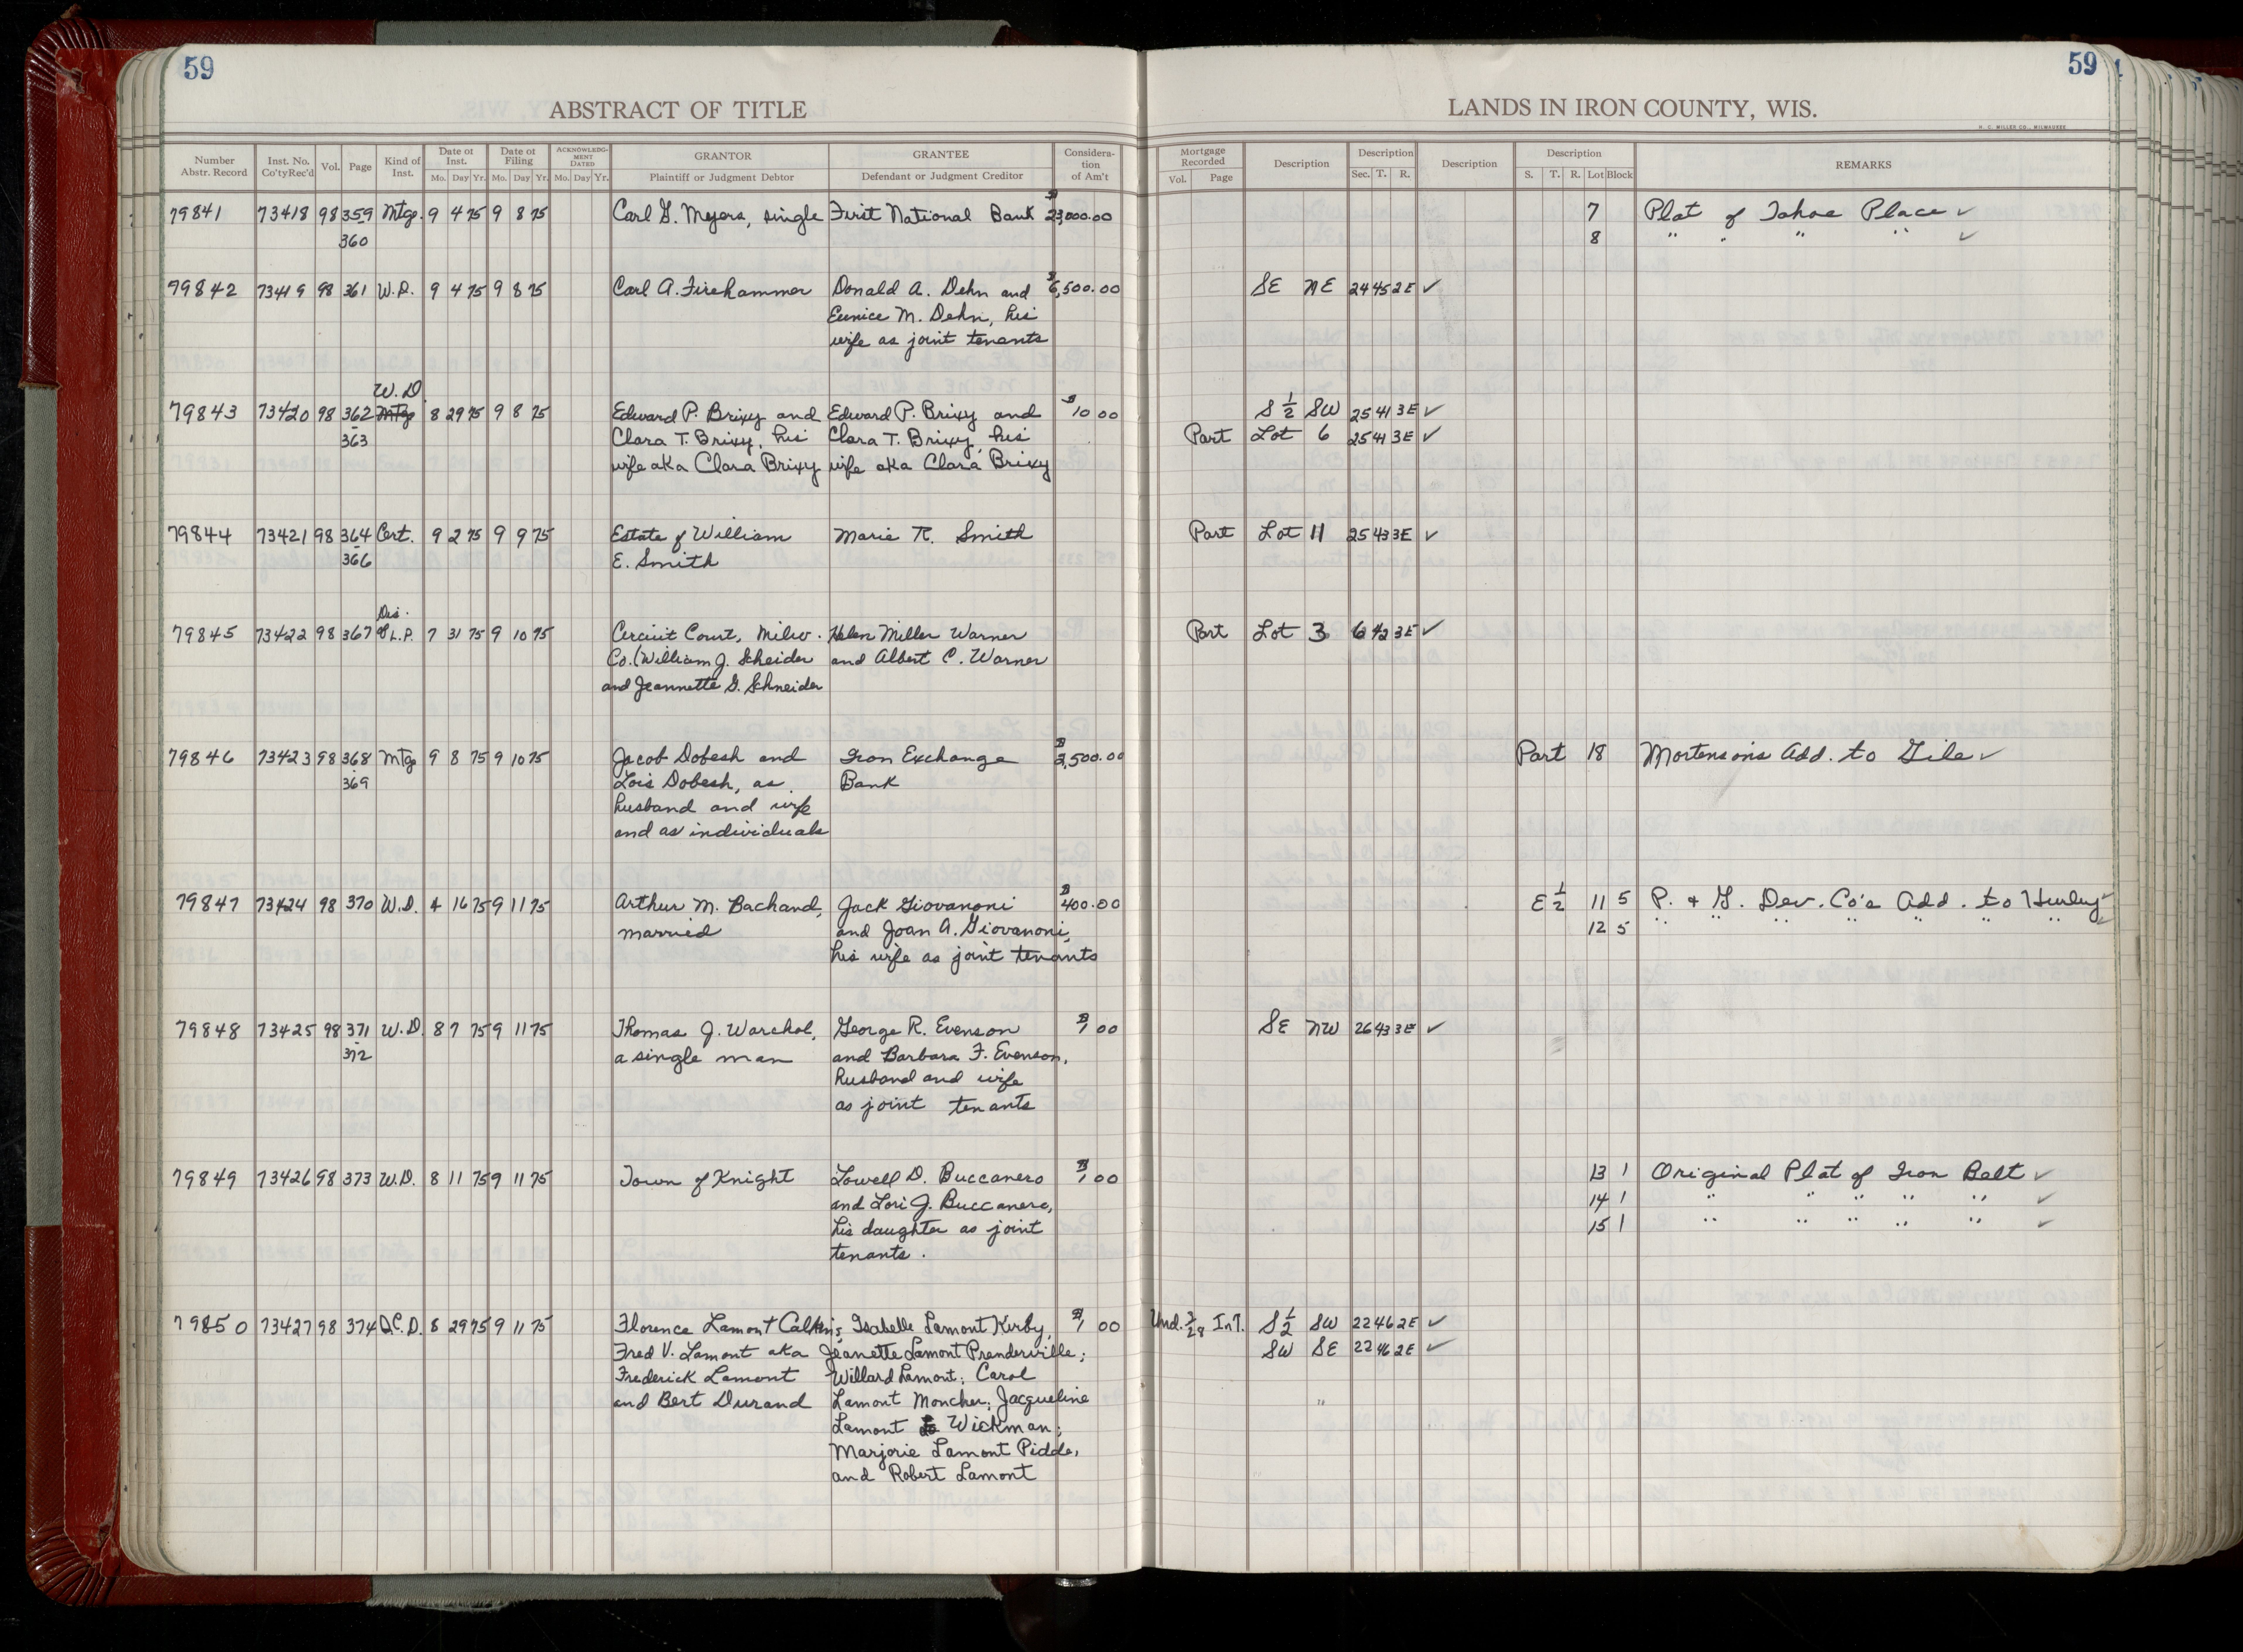 59 59
ABSTRACT OF TITLE LANDS IN IRON COUNTY, WIS.
H. C. MILLER CO., MILWAUKEE
Number Abstr. Record Inst. No. Co'ty Rec'd Vol. Page Kind of Inst. Date of Inst. Mo. Day Yr. Date of Filing Mo. Day Yr. ACKNOWLEDGMENT DATED Mo. Day Yr. GRANTOR Plaintiff or Judgment Debtor GRANTEE Defendant or Judgment Creditor Consideration of Am't Mortgage Recorded Vol. Page Description Description Sec. T. R. Description Description S. T. R. Lot Block REMARKS
79841 73418 98 359 Mtge. 9 4 75 9 8 75 Carl G. Meyers, single First National Bank $23,000.00 7 Plat of Tahoe Place ✓
360 8 " " " " ✓
79842 73419 98 361 W.D. 9 4 75 9 8 75 Carl A. Firehammer Donald A. Dehn and $6,500.00 SE NE 24 45 2E ✓
Eunice M. Dehn, his
wife as joint tenants
W.D.
79843 73420 98 362 Mtg 8 29 75 9 8 75 Edward P. Brixy and Edward P. Brixy and $10 00 S 1/2 SW 25 41 3E ✓
363 Clara T. Brixy, his Clara T. Brixy, his Part Lot 6 25 41 3E ✓
wife aka Clara Brixy wife aka Clara Brixy
79844 73421 98 364 Cert. 9 2 75 9 9 75 Estate of William Marie R. Smith Part Lot 11 25 43 3E ✓
366 E. Smith
Dis.
79845 73422 98 367 of L.P. 7 31 75 9 10 75 Circuit Court, Milw. Helen Miller Warner Part Lot 3 6 42 3E ✓
Co. (William J. Scheider and Albert C. Warner
and Jeannette G. Schneider
79846 73423 98 368 Mtg 9 8 75 9 10 75 Jacob Dobesh and Iron Exchange ,500.00 Part 18 Mortensons Add. to Gile ✓
369 Lois Dobesh, as Bank
husband and wife
and as individuals
79847 73424 98 370 W.D. 4 16 75 9 11 75 Arthur M. Bachand, Jack Giovanoni $400.00 E 1/2 11 5 P. & G. Dev. Co's Add. to Hurley ✓
married and Joan A. Giovanoni, 12 5 " " " " " " " ✓
his wife as joint tenants
79848 73425 98 371 W.D. 8 7 75 9 11 75 Thomas J. Warchol, George R. Evenson $1 00 SE NW 26 43 3E ✓
372 a single man and Barbara F. Evenson,
husband and wife
as joint tenants
79849 73426 98 373 W.D. 8 11 75 9 11 75 Town of Knight Lowell D. Buccanero $1 00 13 1 Original Plat of Iron Belt ✓
and Lori J. Buccanero, 14 1 " " " " " ✓
his daughter as joint 15 1 " " " " " ✓
tenants.
79850 73427 98 374 Q.C.D. 8 29 75 9 11 75 Florence Lamont Calkins, Isabelle Lamont Kirby, $1 00 Und. 3/28 Int. S 1/2 SW 22 46 2E ✓
Fred V. Lamont aka Jeanette Lamont Prenderville; SW SE 22 46 2E ✓
Frederick Lamont Willard Lamont; Carol
and Bert Durand Lamont Moncher; Jacqueline
Lamont Wickman;
Marjorie Lamont Pidde,
and Robert Lamont